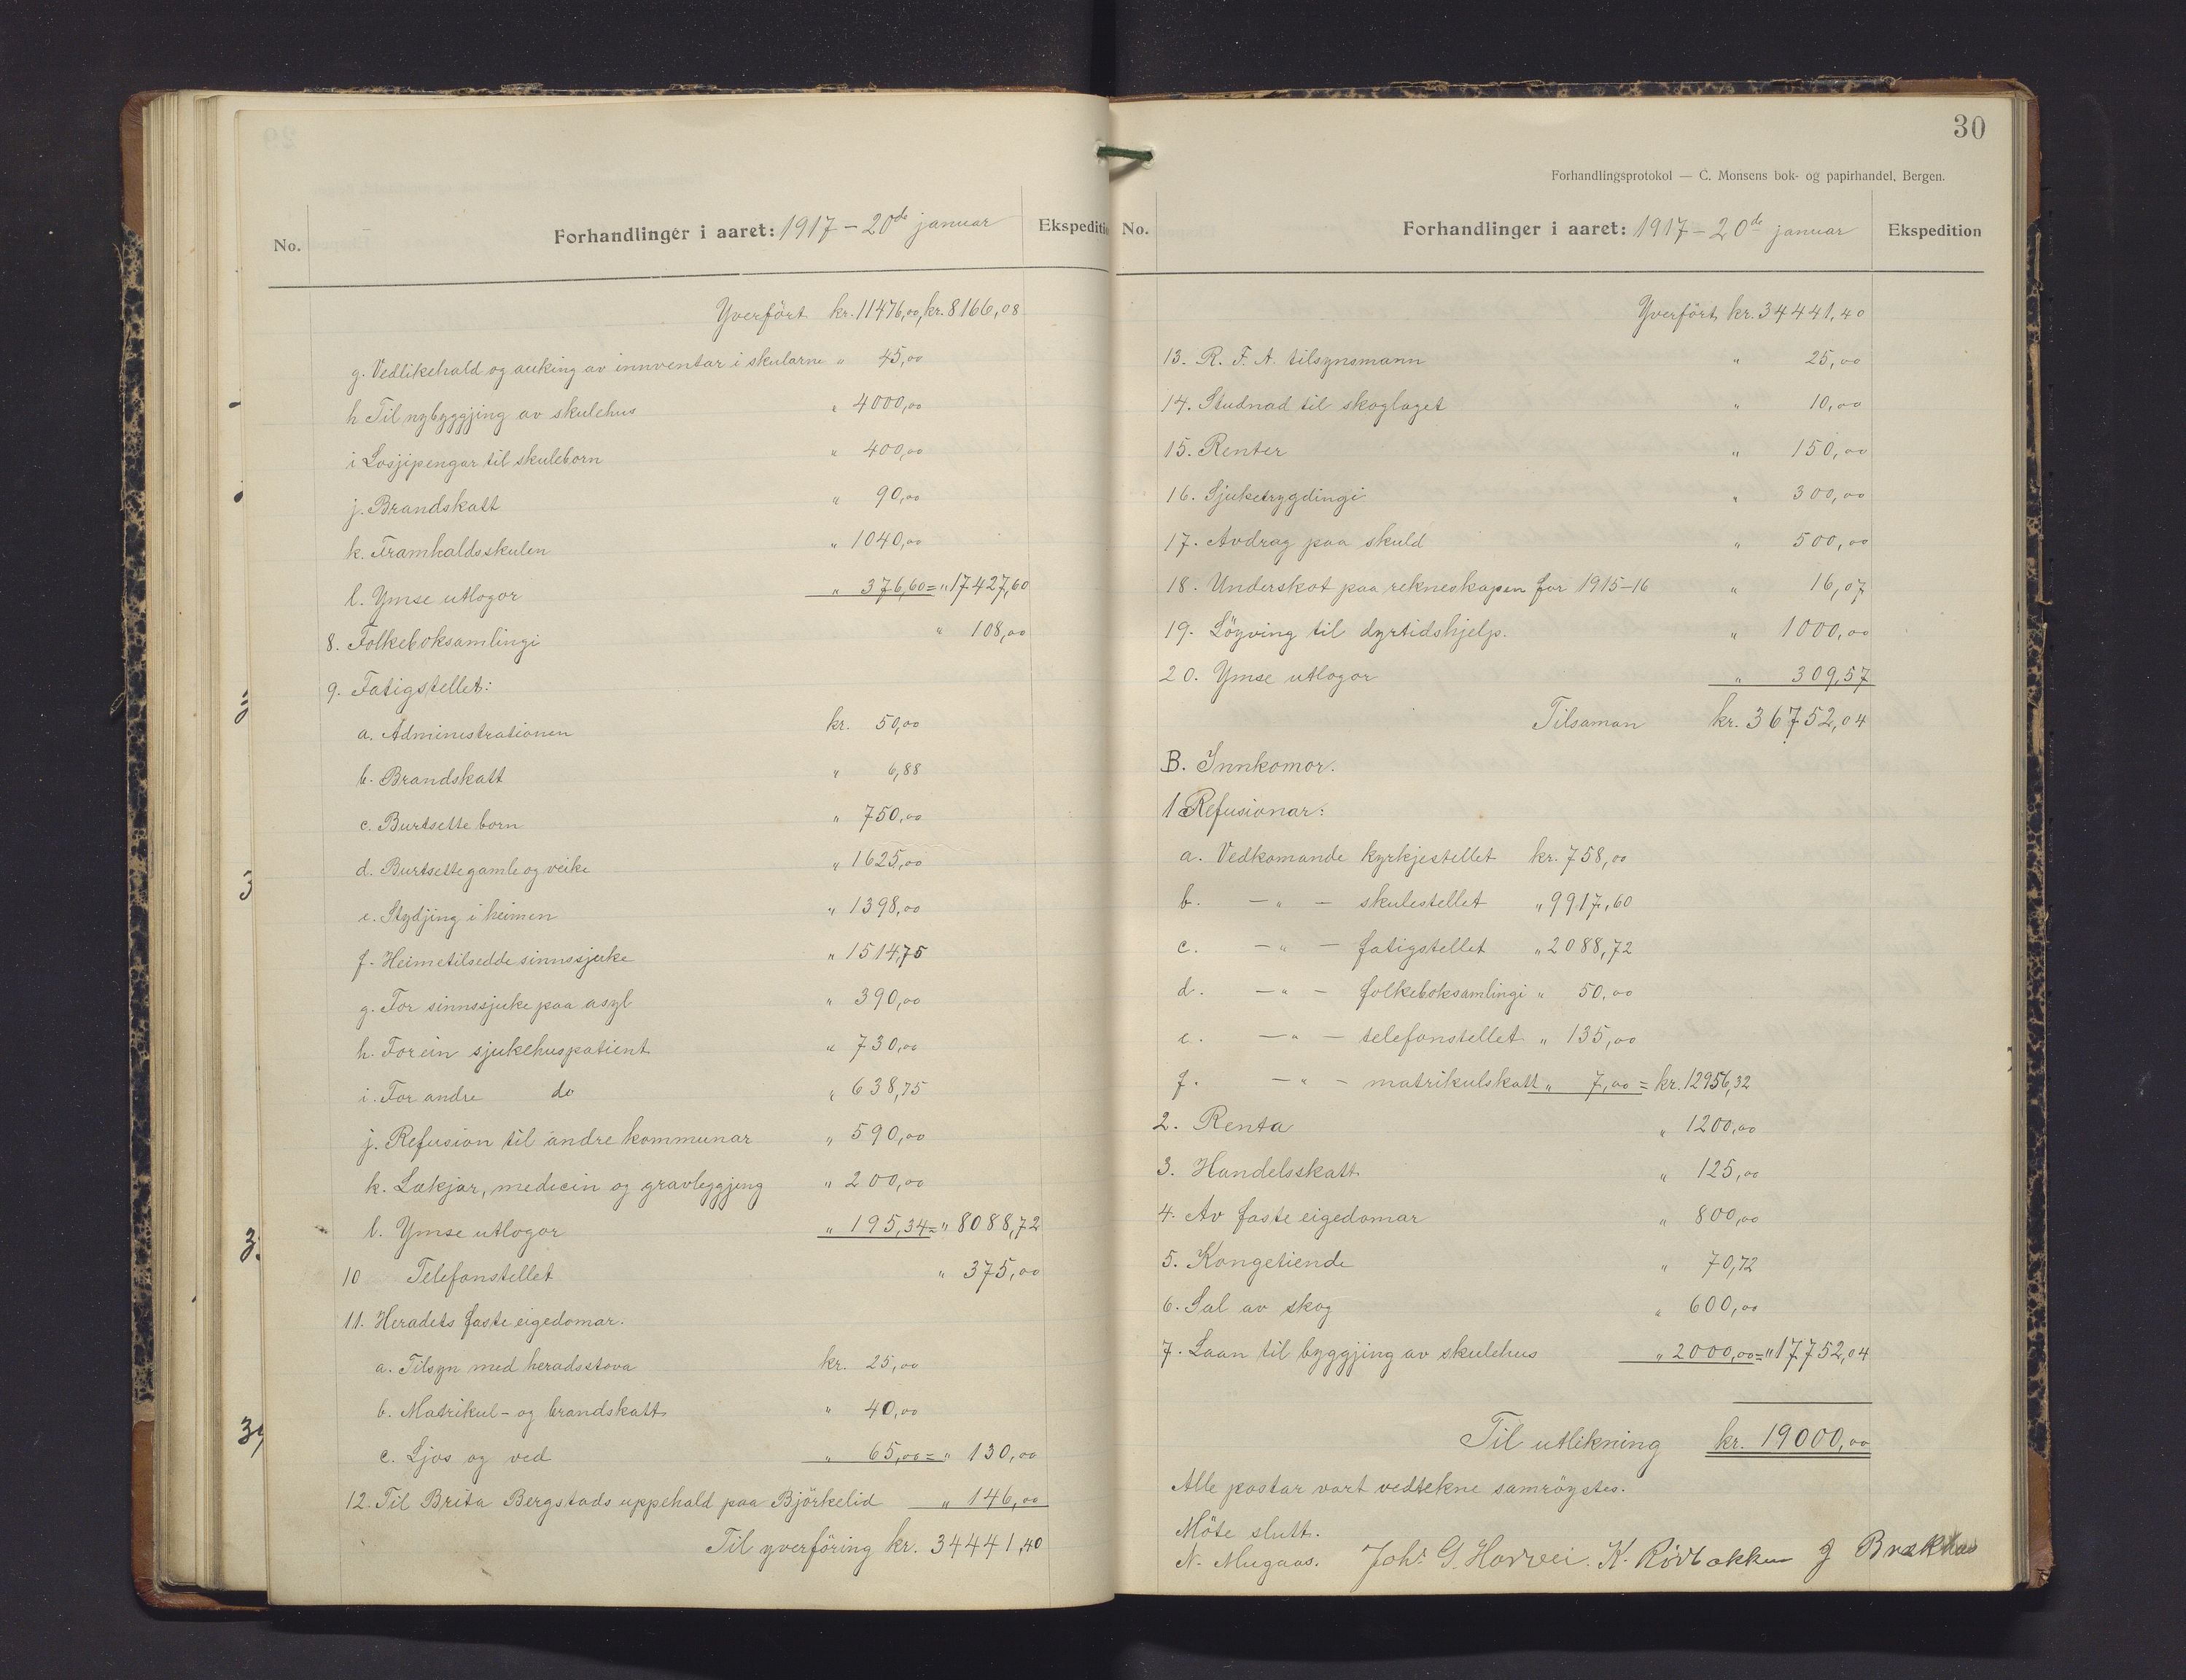 No.
Forhandlinger i aaret: 1917 - 20de januar
Ekspeditio
Yverført kr. 11476,00, kr. 8166,08
g. Vedlikehald og auking av innventar i skularne " 45,00
h Til nybyggjing av skulehus " 4000,00
i Losjipengar til skuleborn " 400,00
j. Brandskatt " 90,00
k. Framhaldsskulen " 1040,00
l. Ymse utlogor " 376,60 = " 17427,60
8. Folkeboksamlingi " 108,00
9. Fatigstellet:
a. Administrationen kr. 50,00
b. Brandskatt " 6,88
c. Burtsette born " 750,00
d. Burtsette gamle og veike " 1625,00
e. Stydjing i heimen " 1398,00
f. Heimetilsedde sinnssjuke " 1514,75
g. For sinnssjuke paa asyl " 390,00
h. For ein sjukehuspatient " 730,00
i. For andre do " 638,75
j. Refusion til andre kommunar " 590,00
k. Lækjar, medicin og gravleggjing " 200,00
l. Ymse utlogor " 195,34 = " 8088,72
10 Telefonstellet " 375,00
11. Heradets faste eigedomar.
a. Tilsyn med heradsstova kr. 25,00
b. Matrikul- og brandskatt " 40,00
c. Ljos og ved " 65,00 = " 130,00
12. Til Brita Bergstads uppehald paa Björkelid " 146,00
Til yverföring kr. 34441,40
30
Forhandlingsprotokol — C. Monsens bok- og papirhandel, Bergen.
No.
Forhandlinger i aaret: 1917 - 20de januar
Ekspedition
Yverført kr. 34441,40
13. R. F. A. tilsynsmann " 25,00
14. Studnad til skoglaget " 10,00
15. Renter " 150,00
16. Sjuketrygdingi " 300,00
17. Avdrag paa skuld " 500,00
18. Underskot paa rekneskapen for 1915-16 " 16,07
19. Löyving til dyrtidshjelp. " 1000,00
20. Ymse utlogor " 309,57
Tilsaman kr. 36752,04
B. Innkomor.
1 Refusionar:
a. Vedkomande kyrkjestellet kr. 758,00
b. - " - skulestellet " 9917,60
c. - " - fatigstellet " 2088,72
d. - " - folkeboksamlingi " 50,00
e. - " - telefonstellet " 135,00
f. - " - matrikulskatt " 7,00 = kr. 12956,32
2. Renta " 1200,00
3. Handelsskatt " 125,00
4. Av faste eigedomar " 800,00
5. Kongetiende " 70,72
6. Sal av skog " 600,00
7. Laan til byggjing av skulehus " 2000,00 = " 17752,04
Til utlikning kr. 19000,00
Alle postar vart vedtekne samröystes.
Möte slutt.
N. Mugaas. Johs G. Horvei. K. Rödbakken J Brækhus